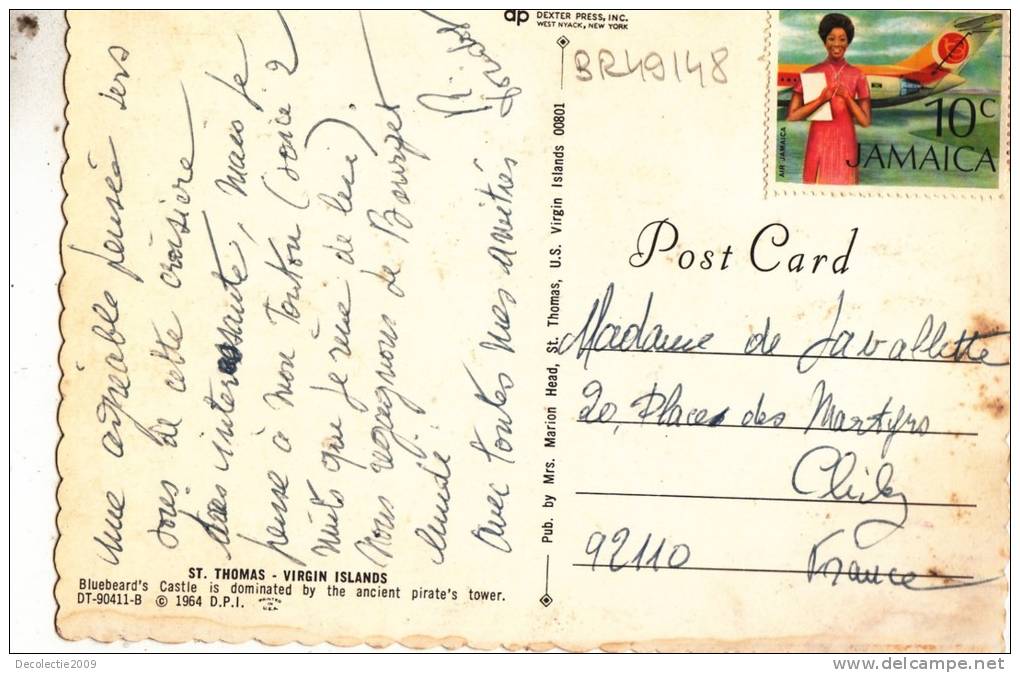 Une agréable pensée vers
vous de cette croisière
très intéressante, mais je
pense à mon Tonton (voici 2
nuits que je rêve de lui)
Nous regagnons de Bourget
lundi
avec toutes mes amitiés
ST. THOMAS - VIRGIN ISLANDS
Bluebeard's Castle is dominated by the ancient pirate's tower.
DT-90411-B © 1964 D.P.I. PRINTED IN U.S.A.
dp DEXTER PRESS, INC.
WEST NYACK, NEW YORK
Pub. by Mrs. Marion Head, St. Thomas, U.S. Virgin Islands 00801
BR49148
AIR JAMAICA
10c
JAMAICA
Post Card
Madame de Lavallette
20, Place des Martyrs
Clichy
92110 France
Decolectie2009
delcampe.net